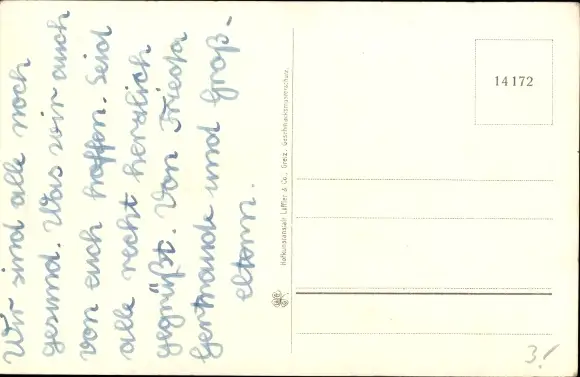 Wir sind alle noch
gesund. Was wir auch
von euch hoffen. Seid
alle recht herzlich
gegrüßt. Von Frieda
Gertraude und Groß-
eltern.
Hofkunstanstalt Löffler & Co., Greiz. Geschmacksmusterschutz.
14172
3!